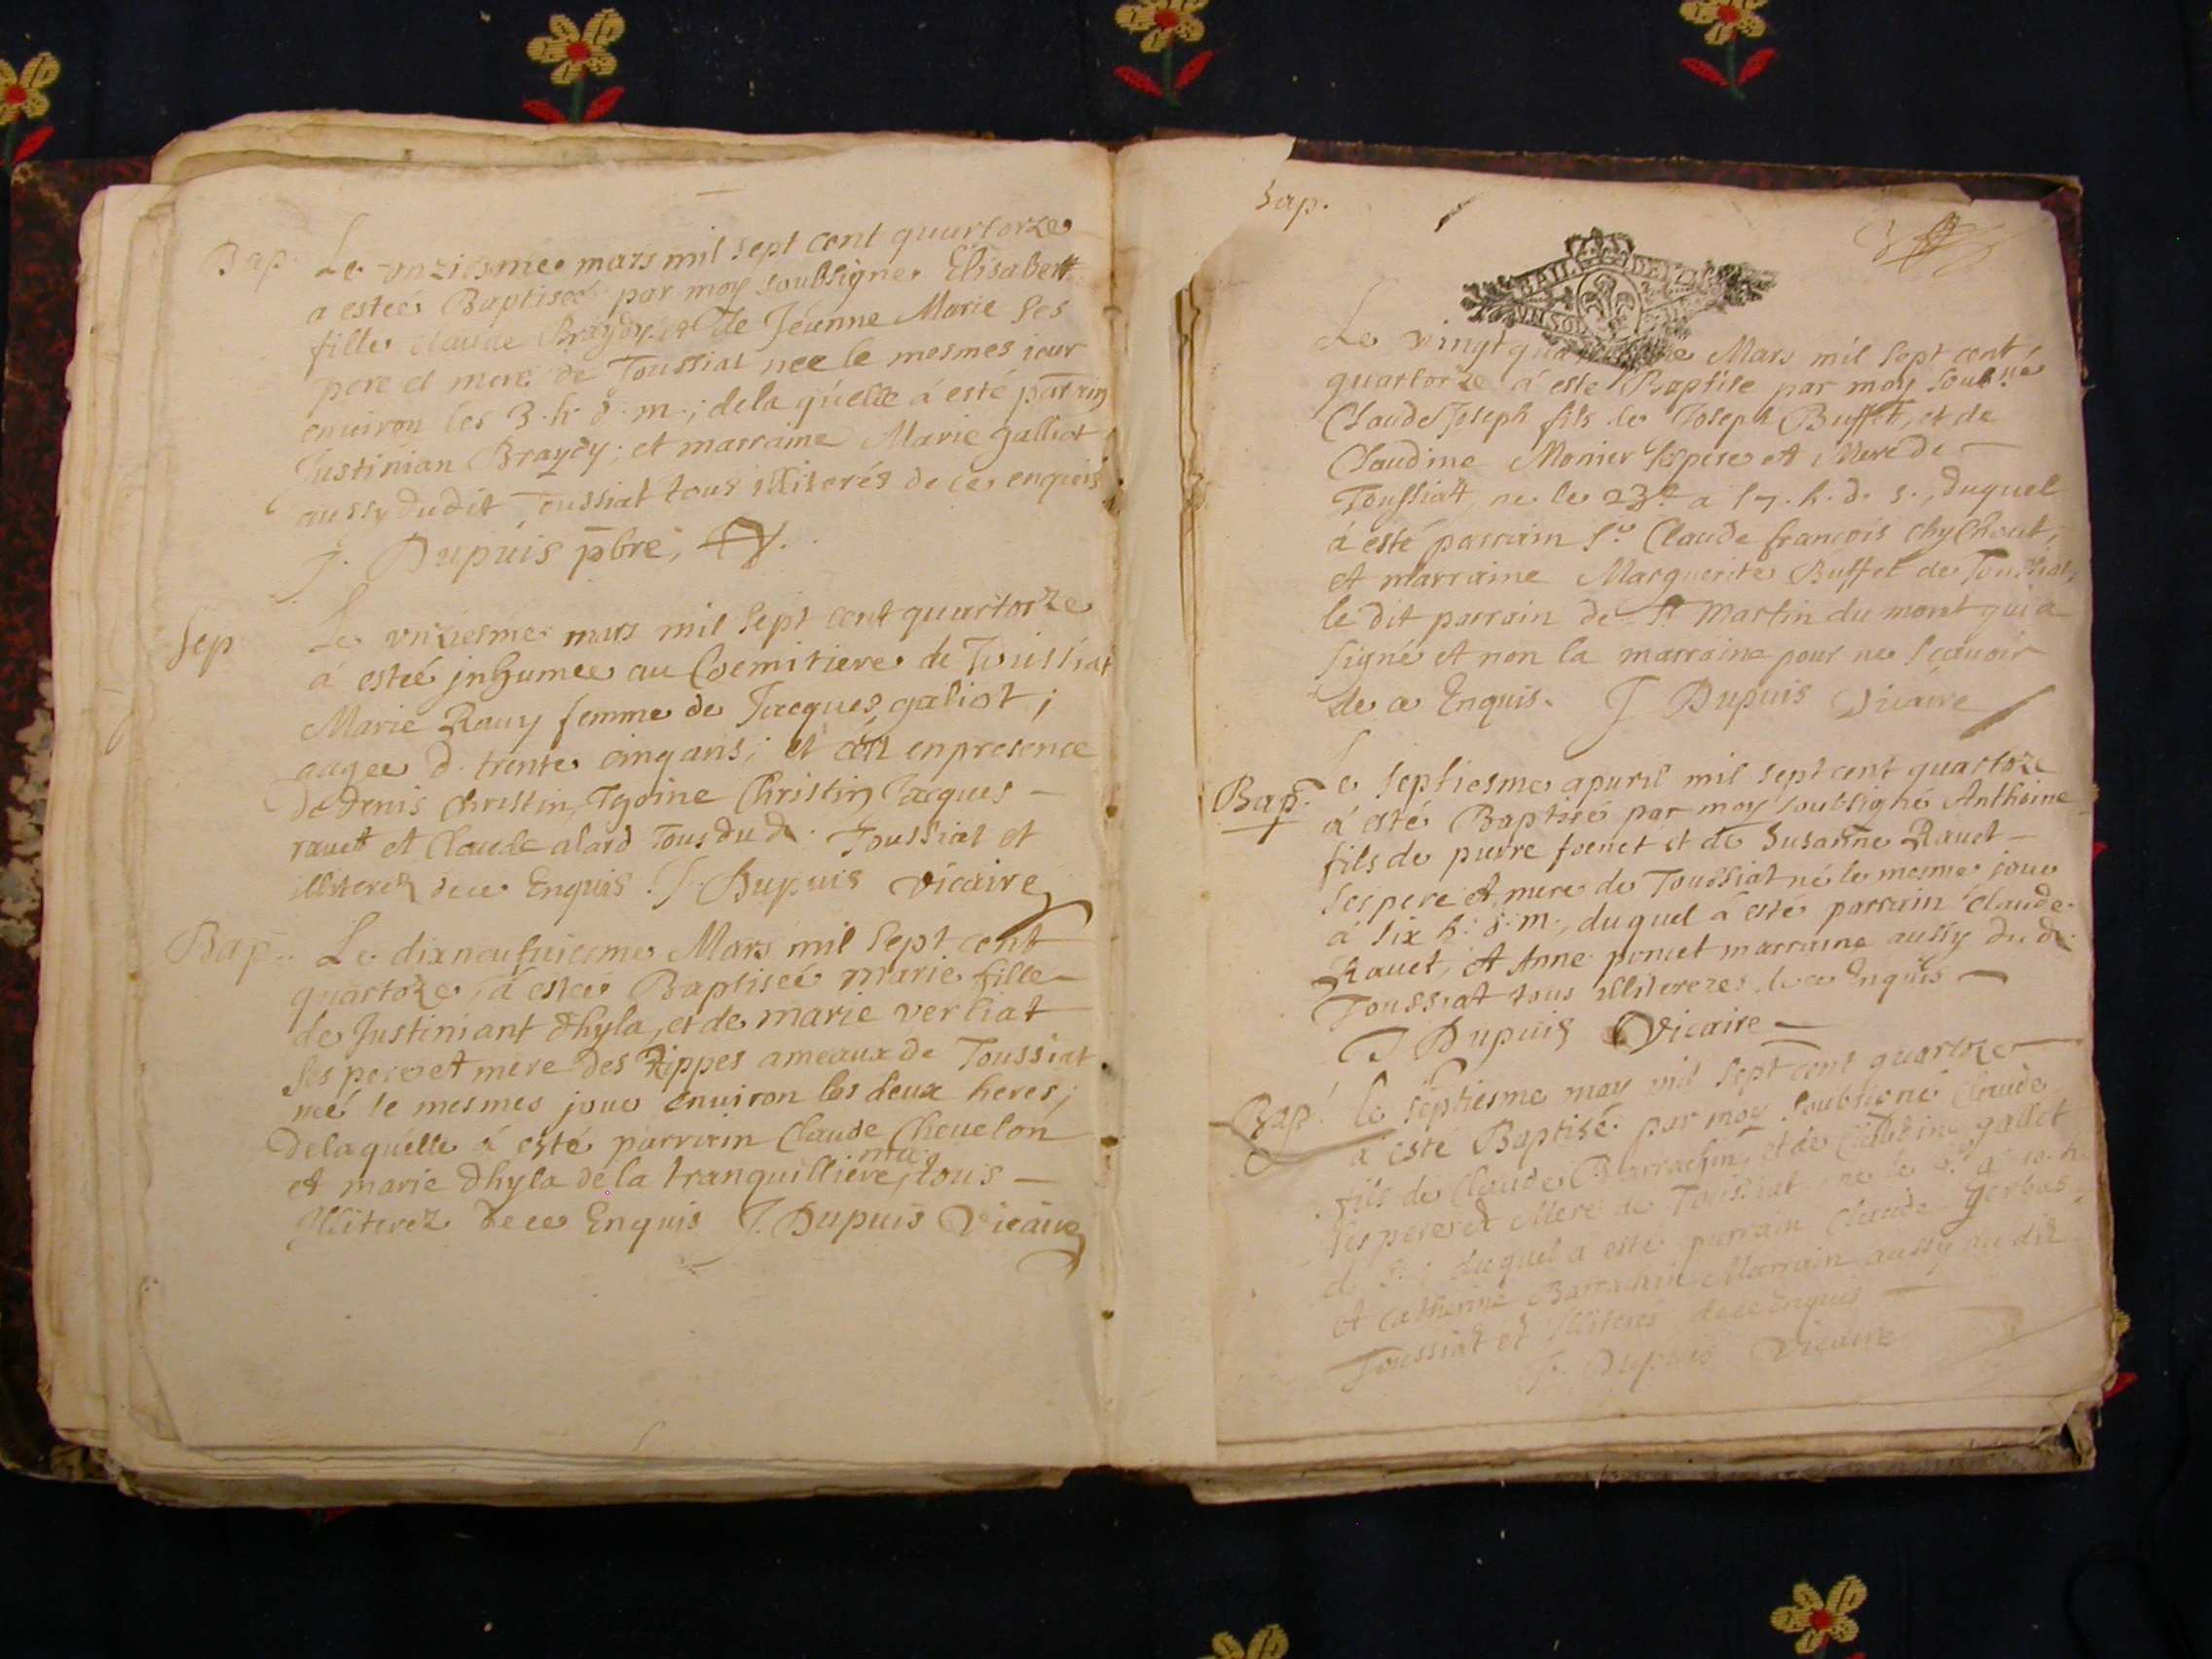 Bap. Le unziesme mars mil sept cent quartorze
a esteé Baptiseé par moy soubsigne Elisabett
fille Claude Braydy et de Jeanne Marie ses
pere et mere de Toussiat nee le mesmes iour
enuiron les 3. h. d. m.; de la quelle á esté parrain
Justinian Braydy; et marraine Marie galliot
aussy dudit Toussiat tous illiterés de ce enquis
J. Dupuis pbre,
Sep Le unziesme mars mil sept cent quartorze
á esteé jnhumee au Coemitiere de Toussiat
Marie Rauy femme de Jacques galiot;
aagee d. trente cinq ans; et en presence
de denis Christin, Christin Jacques
rauet et Claude alard Tous du d. Toussiat et
illiterez de ce Enquis. J. Dupuis vicaire
Bap.. Le dixneufuiesme Mars mil sept cent
quartoze, á esteé Baptiseé marie fille
de Justiniant dhyla, et de marie verliat
ses pere et mere des Rippes ameaux de Toussiat
neé le mesmes jour enuiron les deux heres;
de laquelle á esté parrain Claude Cheuelon
ma.
et marie dhyla de la tranquilliere, tous
Illiterez de ce Enquis J. Dupuis Vicaire
bap.
Le vingt Mars mil sept cent
quartorze á esté Baptise par moy
Claude Joseph fils de Joseph Buffet, et de
Claudine Monier ses pere et Mere de
Toussiatt, ne le 23e a 17. h. d. s., duquel
á esté parrain Sr Claude francois
et marraine Marguerite Buffet de Toussiat,
le dit parrain de St Martin du mont qui a
signé et non la marraine pour ne scauoir
de ce Enquis. J Dupuis Vicaire
Bap. Le septiesme apuril mil sept cent quartoze
á esté Baptisé par moy soubsigné Anthoine
fils de pierre foenet et de Susanne Rauet
ses pere et mere de Toussiat né le mesme jour
á six h. d. m., du quel á esté parrain Claude
Rauet, et Anne poncet marraine aussy du d.
Toussiat tous illiterezes de ce Enquis
J Dupuis Vicaire
Bap. le septiesme may mil sept cent quartoze
á este Baptisé par moy soubsigné Claude
fils de Claude Barrachin, et de gallet
ses pere et Mere de Toussiat, ne le a 10. h.
d. s.; duquel a esté parrain Claude
et Catherine Barrachin Marrain aussy du dit
Toussiat et illiterés de ce Enquis
J. Dupuis Vicaire